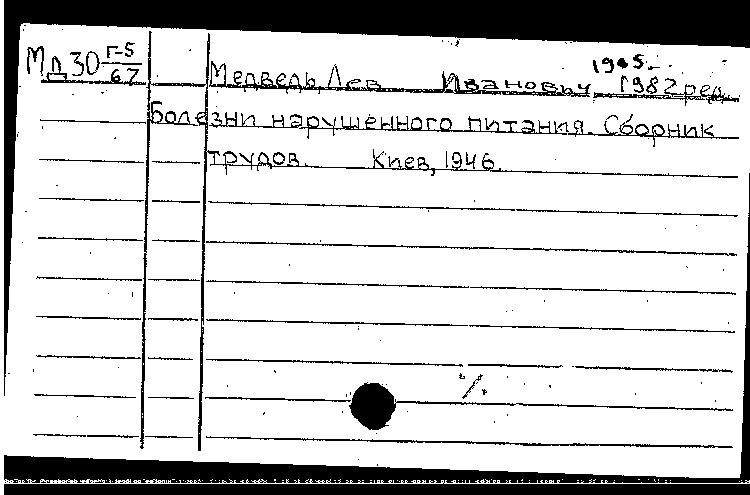 Мд 30 Г-5/67
1905-
Медведь, Лев Иванович, 1982 ред.
Болезни нарушенного питания. Сборник
трудов. Киев, 1946.